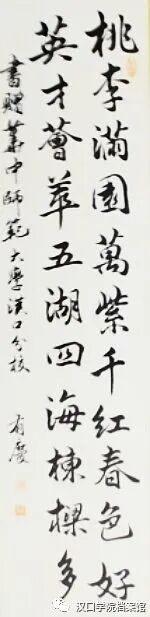 桃李滿園萬紫千紅春色好
英才薈萃五湖四海棟樑多
書贈華中師範大學漢口分校
有慶
汉口学院档案馆